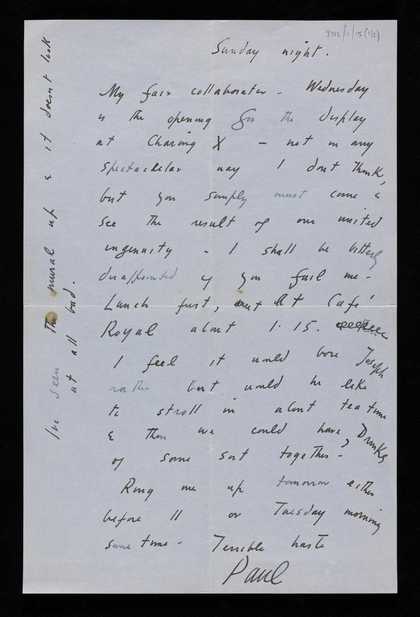 Sunday night.
My fair collaborator - Wednesday
is the opening for the display
at Charing X - not in any
spectacular way I dont think,
but you simply must come &
see the result of our united
ingenuity - I shall be bitterly
disappointed if you fail me -
Lunch first, at Café
Royal about 1.15.
I feel it would bore Joseph
rather but would he like
to stroll in about tea time
& then we could have Drinks
of some sort together?
Ring me up tomorrow either
before 11 or Tuesday morning
same time - Terrible haste
Paul
I've seen the mural up & it doesnt look
at all bad.